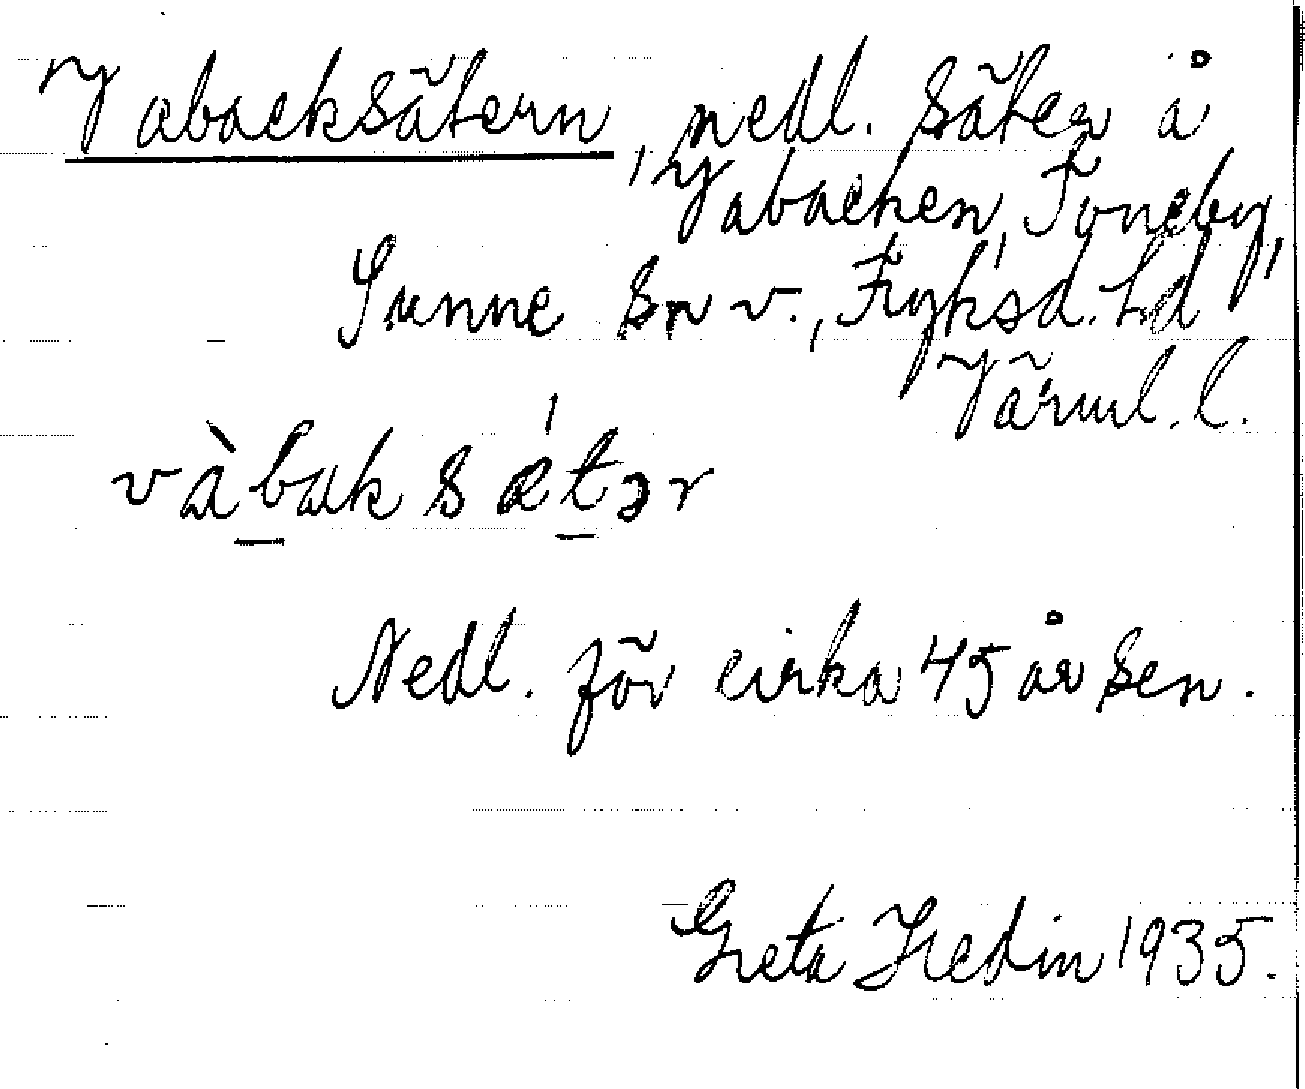 Vabacksätern, nedl. säter å
Vabacken, Toneby,
Sunne sn v., Fryksd. hd
Värml. l.
vàbaksǽtər
Nedl. för cirka 45 år sen.
Greta Hedin 1935.